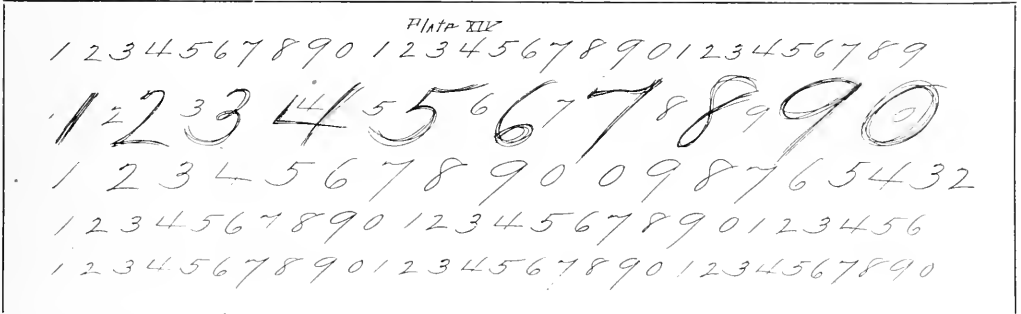 Plate XIV
1 2 3 4 5 6 7 8 9 0 1 2 3 4 5 6 7 8 9 0 1 2 3 4 5 6 7 8 9
1 2 2 3 3 4 4 5 5 6 6 7 7 8 8 9 9 0 0 1
1 2 3 4 5 6 7 8 9 0 0 9 8 7 6 5 4 3 2
1 2 3 4 5 6 7 8 9 0 1 2 3 4 5 6 7 8 9 0 1 2 3 4 5 6
1 2 3 4 5 6 7 8 9 0 1 2 3 4 5 6 7 8 9 0 1 2 3 4 5 6 7 8 9 0